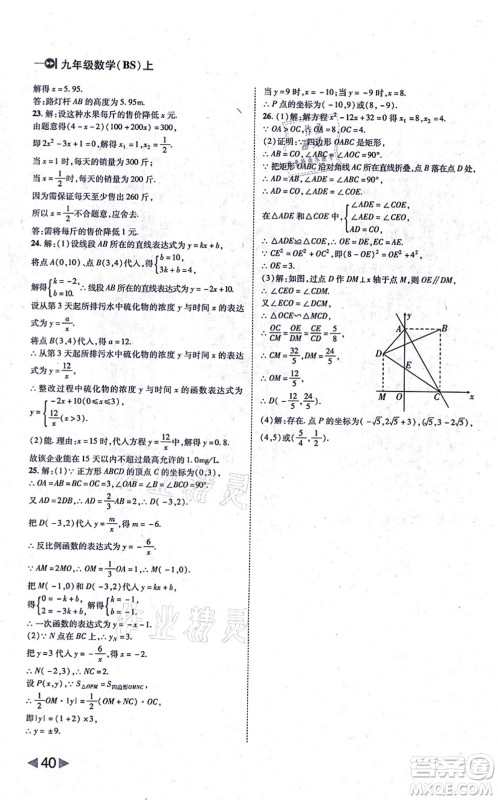 九年级数学(BS)上
解得 x=5.95.
答:路灯杆 AB 的高度为 5.95m.
23.解:设这种水果每斤的售价降低 x 元.
由题意得(4-x-2)(100+200x)=300,
即 2x²-3x+1=0,解得 x=1 或 x=1/2.
当 x=1 时,每天的销量为 300 斤;
当 x=1/2 时,每天的销量为 200 斤.
因为需保证每天至少售出 260 斤,
所以 x=1/2 不合题意,应舍去.
答:需将每斤的售价降低 1 元.
24.解:(1)设线段 AB 所在的直线表达式为 y=kx+b,
将点 A(0,10),点 B(3,4)代入,得{b=10, 3k+b=4,
解得{k=-2, b=10. ∴y=-2x+10.
设从第 3 天起所排污水中硫化物的浓度 y 与时间 x 的表达式为 y=a/x.
将点 B(3,4)代入,得 a=12.
∴从第 3 天起所排污水中硫化物的浓度 y 与时间 x 的表达式为 y=12/x.
∴整改过程中硫化物的浓度 y 与时间 x 的函数表达式为 y={-2x+10(0≤x≤3), 12/x(x>3).
(2)能.理由:x=15 时,代入方程 y=12/x,解得 y=0.8.
故该企业能在 15 天以内不超过最高允许的 1.0mg/L.
25.解:(1)∵正方形 ABCD 的顶点 C 的坐标为(0,3),
∴OA=AB=BC=OC=3,∠OAB=90°.
又∵AD=2DB,∴AD=2/3AB=2.∴D(-3,2).
把 D(-3,2)代入 y=m/x,得 m=-6.
∴反比例函数的表达式为 y=-6/x.
∵AM=2OM,∴OM=1/3OA=1.∴M(-1,0).
把 M(-1,0)和 D(-3,2)代入 y=kx+b,
得{0=-k+b, 2=-3k+b, 解得{k=-1, b=-1.
∴一次函数的表达式为 y=-x-1.
(2)∵N 在 BC 边上,∴y_N=3=-6/x.∴x=-2.
∴N(-2,3).∴NC=2.
设 P(x,y),∵S△OPM=S四边形OMNC,
∴1/2OM·|y|=1/2(OM+NC)·OC.
即|y|=(1+2)×3=9.
∴y=±9.
当 y=9 时,x=-10;当 y=-9 时,x=8.
∴P 点的坐标为(-10,9)或(8,-9).
26.(1)解:解方程 x²-12x+32=0 得 x₁=8,x₂=4.
∵OA>OC,∴OA=8,OC=4.
(2)证明:∵四边形 OABC 是矩形,
∴AD=AB,∠ABC=∠AOC=90°.
∵把矩形 OABC 沿对角线 AC 所在直线折叠,点 B 落在点 D 处,
∴AD=AB,∠ADE=∠ABC=90°.
{∠ADE=∠COE, ∠AED=∠CEO, AD=CO,
∴△ADE≌△COE.∴OE=DE.
∵CE²=OE²+OC²,∴OE=3.
(3)解:如图,过点 D 作 DM⊥x 轴于点 M,则 OE∥DM,
∴△OCE∽△MCD.
∴OC/CM=OE/DM=CE/CD=5/8.
∴CM=32/5,DM=24/5.
∴OM=12/5.
∴D(-12/5,24/5).
(4)解:存在.点 P 的坐标为(-√5,2√5+3),(√5,3-2√5),(4,5)或
A
B
D
E
M
O
C
x
y
40
作业精灵
答案圈